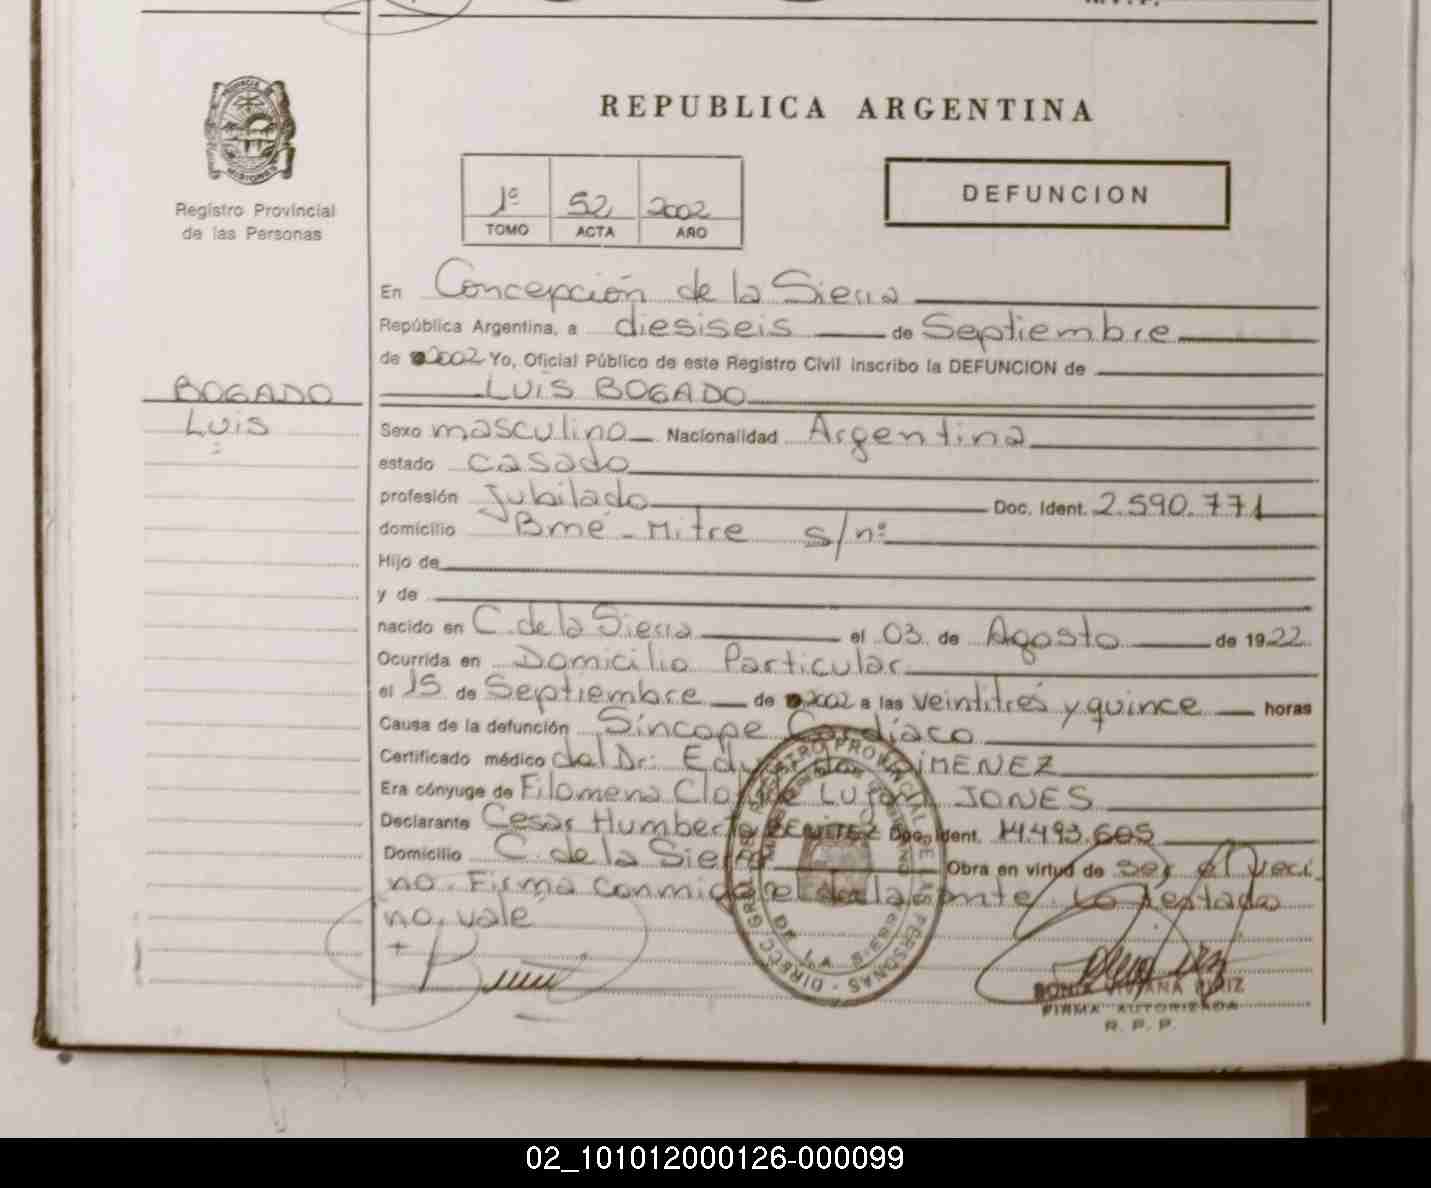 PROVINCIA DE
MISIONES
Registro Provincial
de las Personas
REPUBLICA ARGENTINA
1º 52 2002
TOMO ACTA AÑO
DEFUNCION
En Concepción de la Sierra
República Argentina, a diesiseis de Septiembre
de 2002 Yo, Oficial Público de este Registro Civil inscribo la DEFUNCION de
LUIS BOGADO
BOGADO
LUIS
Sexo masculino Nacionalidad Argentina
estado casado
profesión Jubilado Doc. Ident. 2.590.771
domicilio Bmé-Mitre s/nº
Hijo de
y de
nacido en C. de la Sierra el 03 de Agosto de 1922
Ocurrida en Domicilio Particular
el 15 de Septiembre de 2002 a las veintitrés y quince horas
Causa de la defunción Síncope Cardíaco
Certificado médico del Dr: Eduardo JIMENEZ
Era cónyuge de Filomena Lujan JONES
Declarante Cesar Humberto BENITEZ Doc. Ident. 14.493.605
Domicilio C. de la Sierra Obra en virtud de ser el veci
no. Firma conmigo el declarante. Lo testado
no vale
DIRECC. GRAL. DEL REGISTRO PROVINCIAL DE LAS PERSONAS
DE LA SIERRA
SONIA VIVIANA RUIZ
FIRMA AUTORIZADA
R. P. P.
02_101012000126-000099